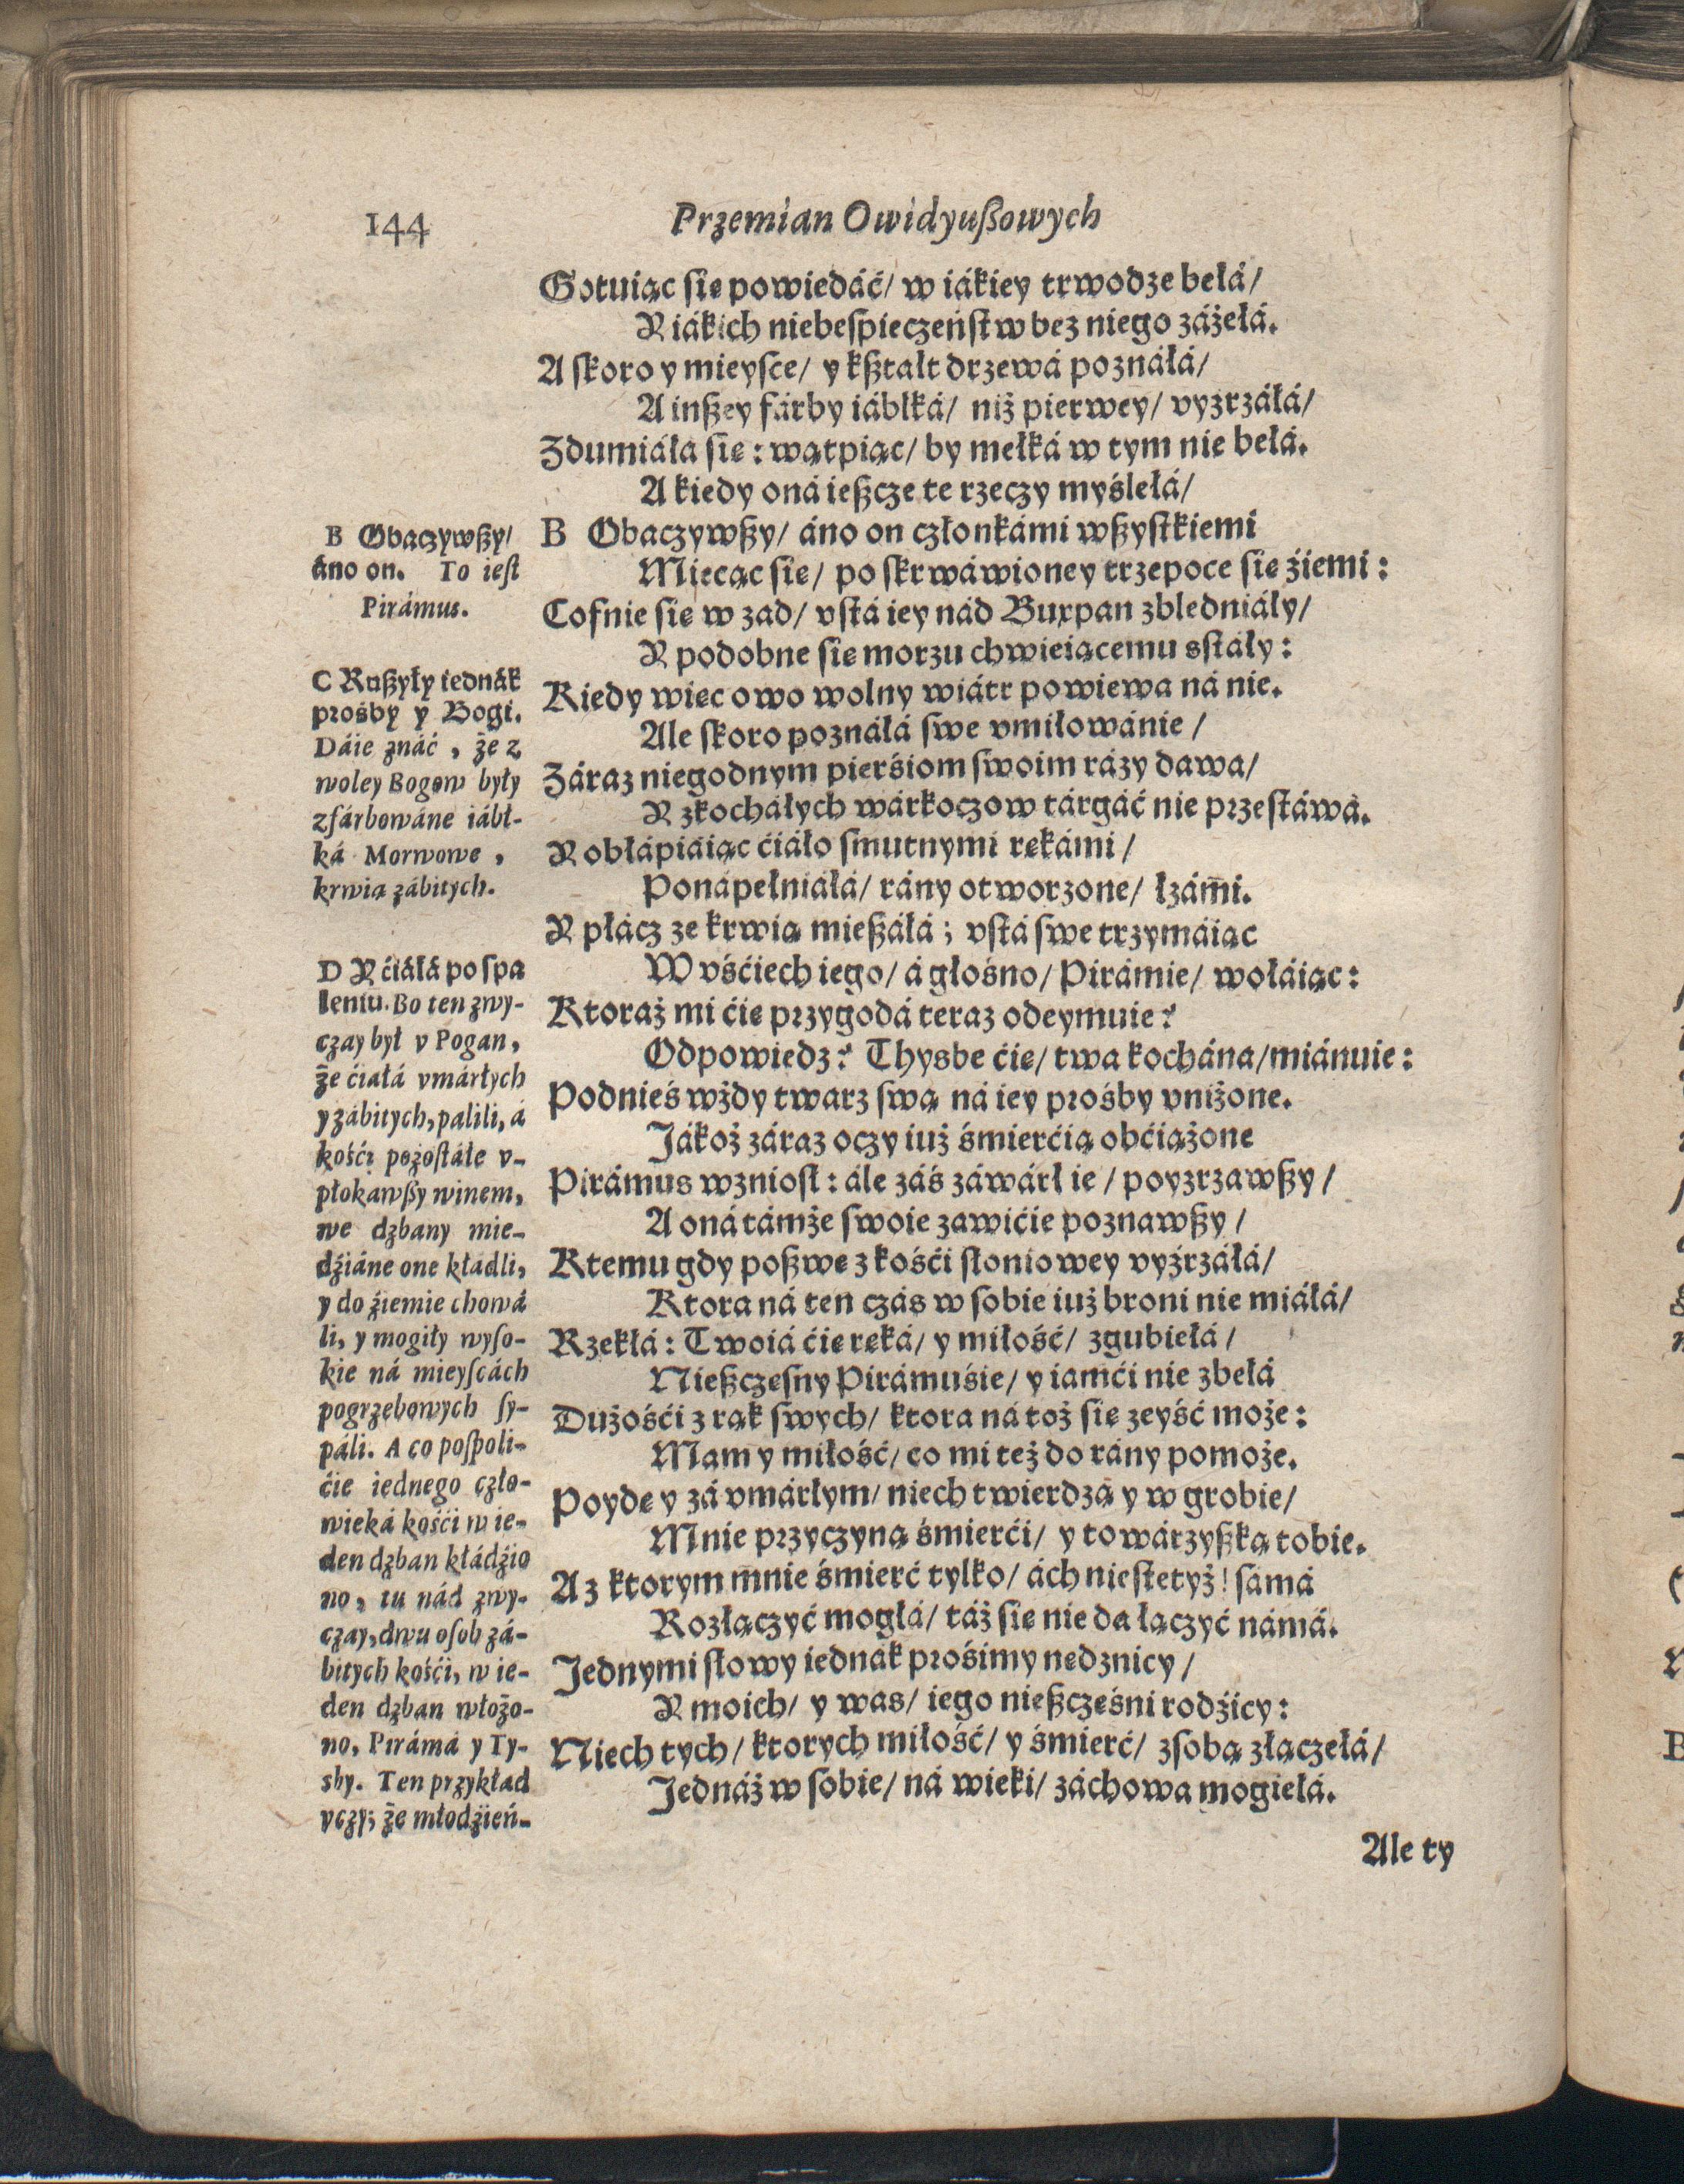 144
Przemian Owidyuſzowych
Gotuiąc ſię powiedáć/ w iákiey trwodze belá/
Y iákich niebeſpieczeńſtw bez niego záżełá.
A ſkoro y mieyſce/ y kſztałt drzewá poznáłá/
A inſzey fárby iábłká/ niż pierwey/ vyzrzáłá/
Zdumiáła ſię: wątpiąc/ by mełká w tym nie belá.
A kiedy oná ieſzcze te rzeczy myślełá/
B Obaczywſzy/ áno on członkámi wſzyſtkiemi
Miecąc ſię/ po ſkrwáwioney trzepoce ſię źiemi:
Cofnie ſię w zad/ vſtá iey nád Buxpan zbledniáły/
Y podobne ſię morzu chwieiącemu sſtáły:
Kiedy więc owo wolny wiátr powiewa ná nie.
Ale ſkoro poznáłá ſwe vmiłowánie/
Záraz niegodnym pierśiom ſwoim rázy dawa/
Y zkochałych wárkoczow tárgáć nie przeſtáwá.
Y obłápiáiąc ćiáło ſmutnymi rękámi/
Ponápełniáłá/ rány otworzone/ łzámi.
Y płácz ze krwią mieſzáłá; vſtá ſwe trzymáiąc
W vśćiech iego/ á głośno/ Pirámie/ wołáiąc:
Ktoraż mi ćię przygodá teraz odeymuie?
Odpowiedz? Thysbe ćię/ twa kochána/miánuie:
Podnieś wżdy twarz ſwą ná iey prośby vniżone.
Jákoż záraz oczy iuż śmierćią obćiążone
Pirámus wznioſł: ále záś záwárł ie/ poyzrzawſzy/
A oná támże ſwoie zawićie poznawſzy/
Ktemu gdy poſzwę z kośći ſłoniowey vyźrzáłá/
Ktora ná ten czás w ſobie iuż broni nie miáłá/
Rzekłá: Twoiá ćię ręká/ y miłość/ zgubiełá/
Nieſzczeſny Pirámuśie/ y iamći nie zbełá
Dużośći z rąk ſwych/ ktora ná toż ſię zeyść może:
Mam y miłość/ co mi też do rány pomoże.
Poydę y zá vmárłym/ niech twierdzą y w grobie/
Mnie przyczyną śmierći/ y towárzyſzką tobie.
A z ktorym mnie śmierć tylko/ ách nieſtetyż! ſámá
Rozłączyć mogłá/ táż ſię nie da łączyć námá.
Jednymi ſłowy iednák prośimy nędznicy/
Y moich/ y was/ iego nieſzcześni rodźicy:
Niech tych/ ktorych miłość/ y śmierć/ zſobą złączełá/
Jednáż w ſobie/ ná wieki/ záchowa mogiełá.
Ale ty
B Obaczywſzy/
áno on. To ieſt
Pirámus.
C Ruſzyły iednák
prośby y Bogi.
Dáie znáć, że z
woley Bogow były
zfárbowáne iábł-
ká Morwowe,
krwią zábitych.
D Y ćiáłá po ſpa
leniu. Bo ten zwy-
czay był v Pogan,
że ćiałá vmárłych
y zábitych, palili, á
kośći pozoſtáłe v-
płokawſzy winem,
we dzbany mie-
dźiáne one kładli,
y do źiemie chowá
li, y mogiły wyſo-
kie ná mieyſcách
pogrzebowych ſy-
páli. A co poſpoli-
ćie iednego czło-
wieká kośći w ie-
den dzban kłádźio
no, tu nád zwy-
czay, dwu oſob zá-
bitych kośći, w ie-
den dzban włożo-
no, Pirámá y Ty-
sby. Ten przykład
vczy; że młodźień-